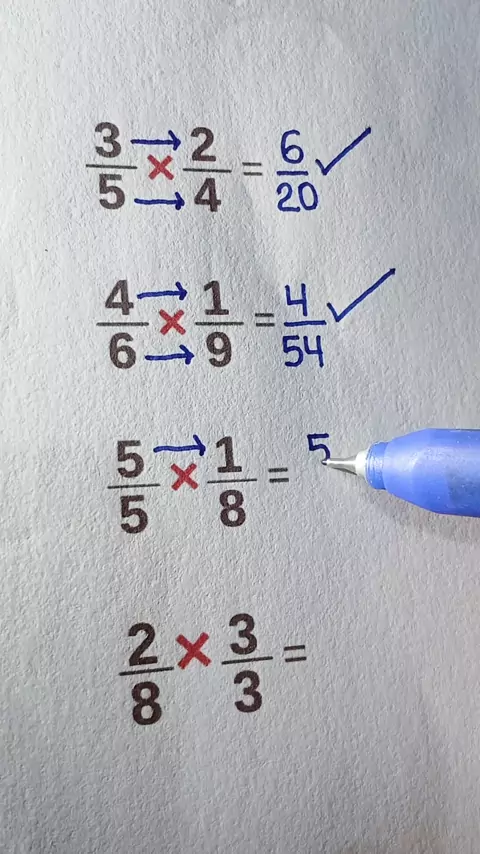 3/5 × 2/4 = 6/20 ✓
4/6 × 1/9 = 4/54 ✓
5/5 × 1/8 = 5
2/8 × 3/3 =